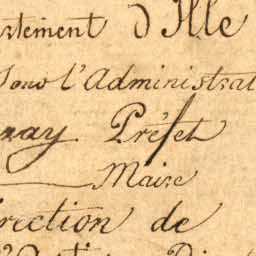 rtement d'Ille
Sous l'Administrat
nay Préfet
Maire
rection de